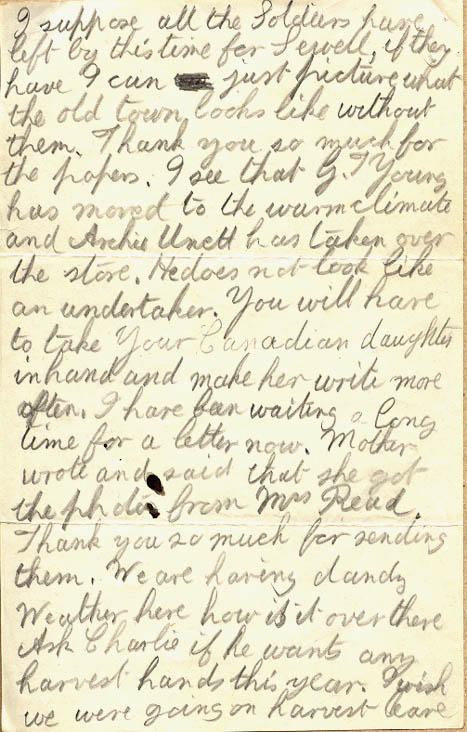 I suppose all the Soldiers have
left by this time for Sewell, if they
have I can just picture what
the old town looks like without
them. Thank you so much for
the papers. I see that G. T Young
has moved to the warm climate
and Archie Unett has taken over
the store. He does not look like
an undertaker. You will have
to take Your Canadian daughter
in hand and make her write more
often. I have been waiting a long
time for a letter now. Mother
wrote and said that she got
the photos from Mrs Read.
Thank you so much for sending
them. We are having dandy
Weather here how is it over there
Ask Charlie if he wants any
harvest hands this year. I wish
we were going on harvest leave